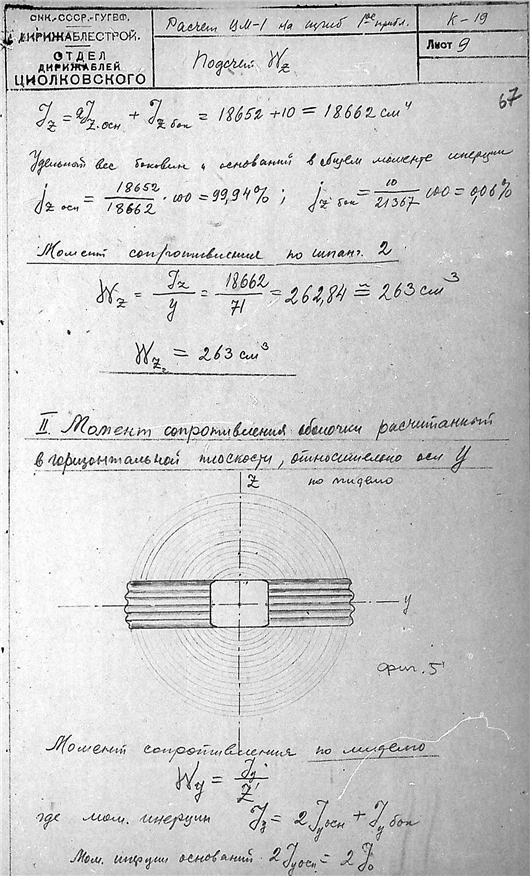 СНК.-СССР.-ГУГВФ.
ДИРИЖАБЛЕСТРОЙ.
ОТДЕЛ
ДИРИЖАБЛЕЙ
ЦИОЛКОВСКОГО
Расчет ЦМ-1 на изгиб 1ое прибл.
Подсчет Wz
К-19
Лист 9
67
Jz = 2Jz.осн + Jz бок = 18652 + 10 = 18662 см⁴
Удельный вес боковин и оснований в общем моменте инерции
jz осн = 18652/18662 · 100 = 99,94% ; jz бок = 10/21367 · 100 = 0,06%
Момент сопротивления по шпанг. 2
Wz = Jz/y = 18662/71 = 262,84 ≅ 263 см³
Wz₂ = 263 см³
II. Момент сопротивления оболочки расчитанный
в горизонтальной плоскости, относительно оси У
по миделю
Z
y
фиг. 5
Момент сопротивления по миделю
Wy = Jy/Z
где мом. инерции Jy = 2Jy осн + Jy бок
Мом. инерции оснований 2Jy осн = 2J₀